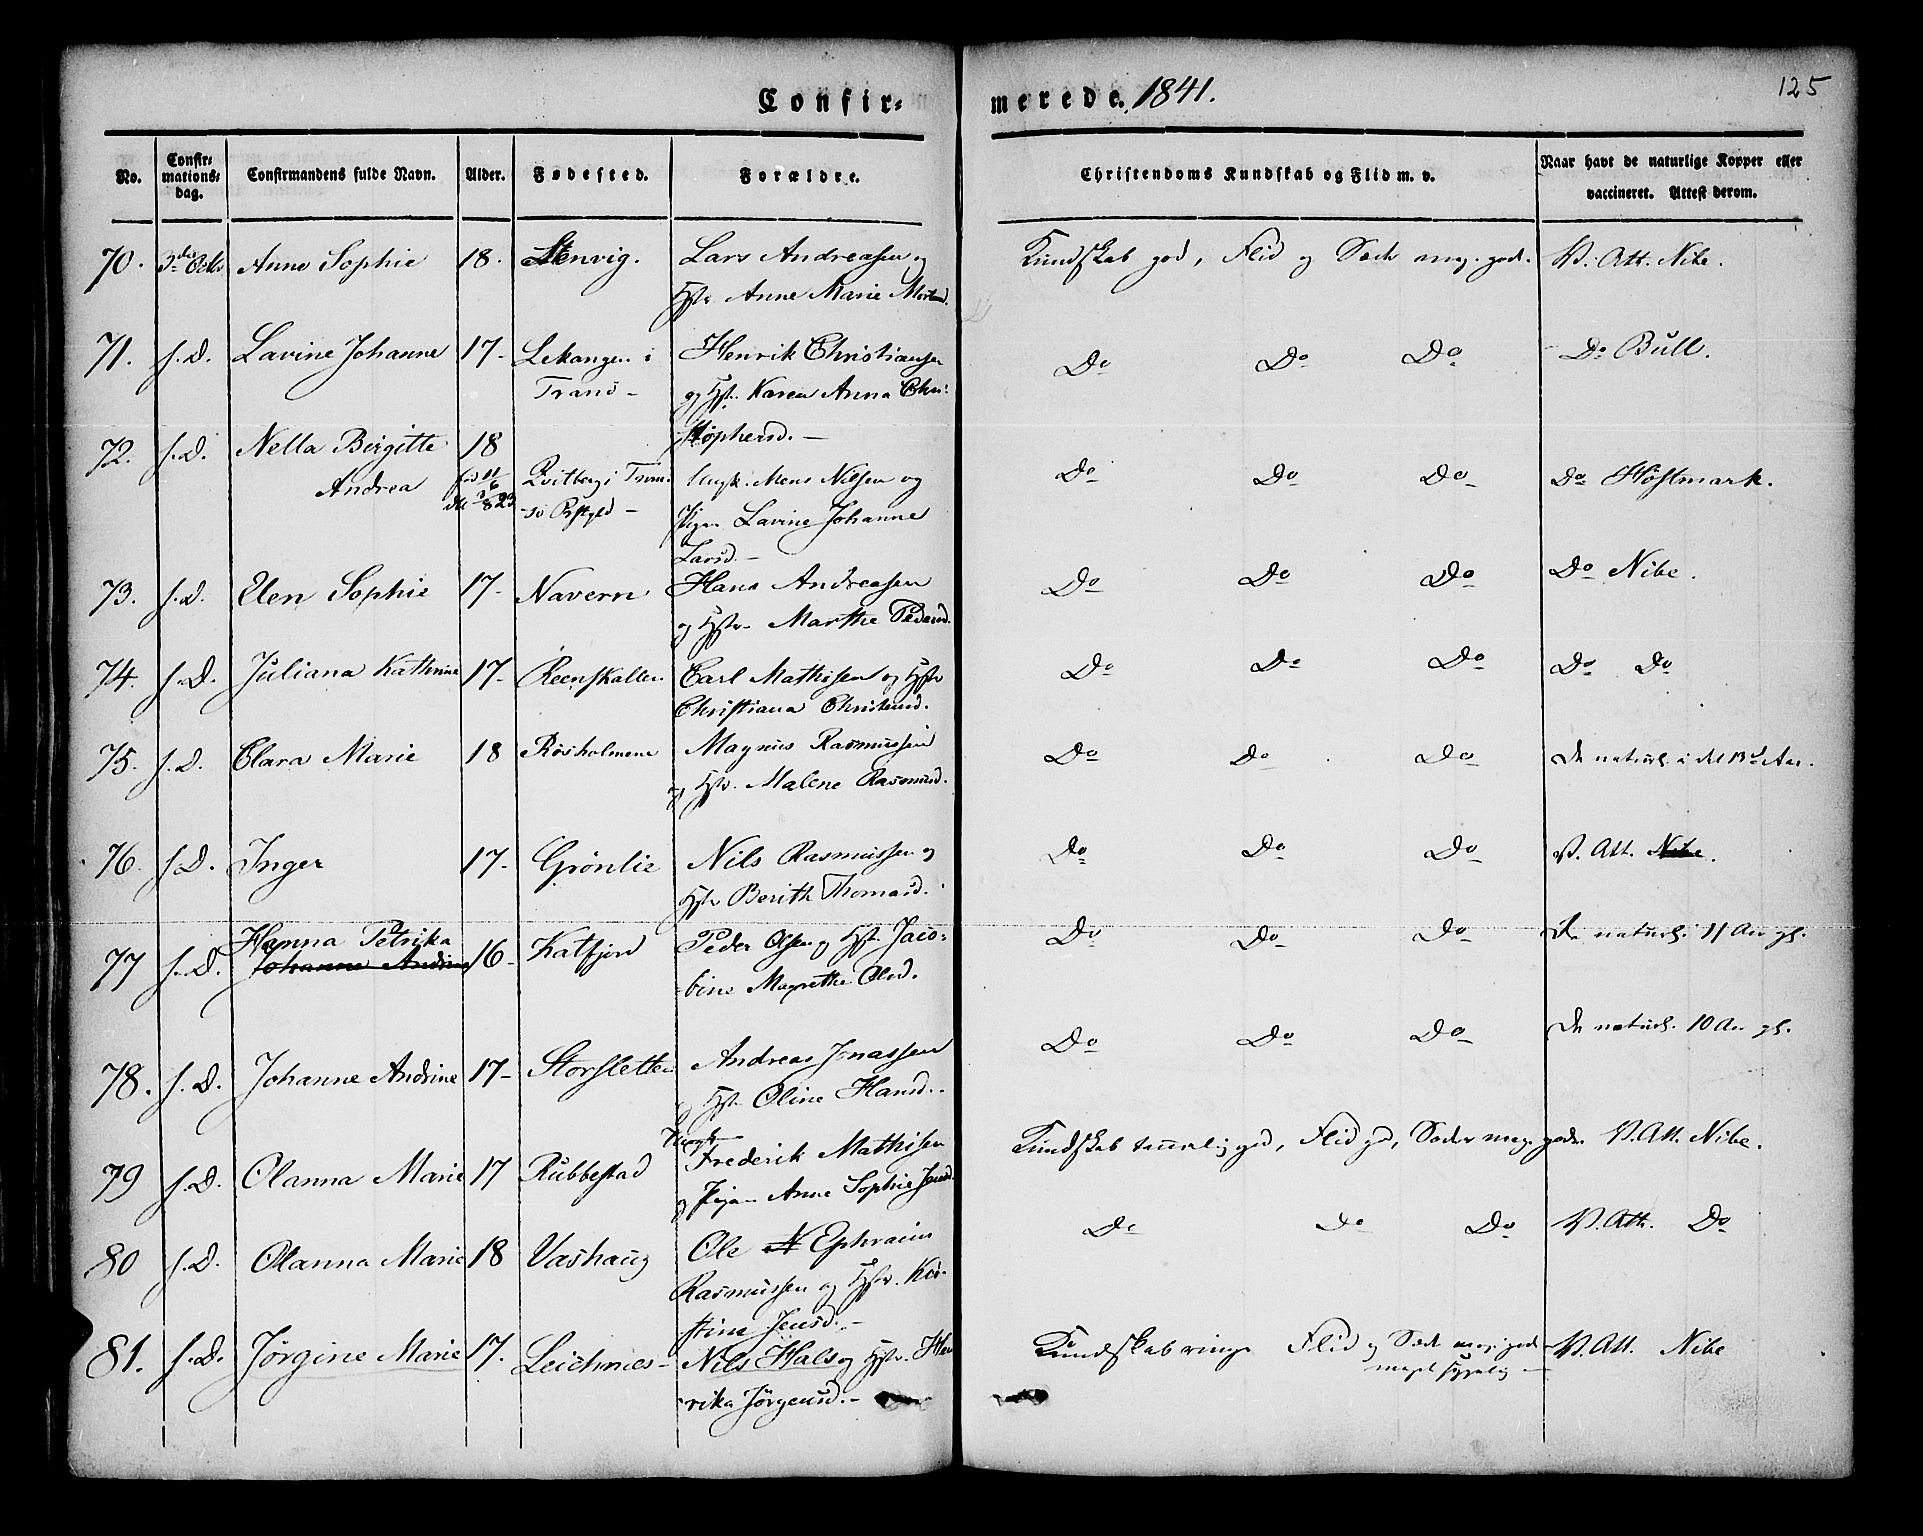 Confir- merede. 1841. 125
No. Confir- mations- dag. Confirmandens fulde Navn. Alder. Fødested. Forældre. Christendoms Kundskab og Flid m. v. Naar havt de naturlige Kopper eller vaccineret. Attest derom.
70. 3die Octbr Anne Sophie 18. Stenvig. Lars Andreasen og Kundskab god, Flid og Sæder meg. god. V. Att. Nibe.
Hstr Anne Marie Mortensd.
71. s. D. Lavine Johanne 17- Lekangen i Henrik Christiansen Do Do Do Do Bull.
Tranø - og Hstr. Karen Anna Chri-
stophersd. -
72. s. D. Nella Birgitte 18 Do Do Do Do Høstmark.
Andrea fød 11/6 1823 Qvitberg i Trom- Ungk. Mons Nilsen og
-sø Pstgld - Pigen Lavine Johanne
Larsd. -
73. s. D. Elen Sophie 17- Navern Hans Andreasen Do Do Do Do Nibe.
og Hstr. Marthe Pedersd.
74. s. D. Juliana Kathrine 17- Reenskallen Carl Mathisen og Hstr Do Do Do Do Do
Christiana Christensd.
75. s. D. Clara Marie 18 Røsholmene Magnus Rasmussen Do Do Do De naturl. i det 13de Aar.
og Hstr. Malene Rasmusd.
76. s. D. Inger 17- Grønlie Nils Rasmussen og Do Do Do V. Att. Nibe.
Hstr Berith Thomasd.
77 s. D. Hanna Petrika 16- Katfjord Peder Olsen og Hstr. Jaco- Do Do Do De naturl. 11 Aar gl.
Johanne Andrine -bine Magrethe Olsd.
78. s. D. Johanne Andrine 17- Storsletten Andreas Jonassen Do Do Do De naturl. 10 Aar gl.
og Hstr. Oline Hansd.
79 s. D. Olanna Marie 17 Rubbestad Ungk. Frederik Mathisen Kundskab temmelig god, Flid god, Sæder meg. gode. V. Att. Nibe.
og Pigen Anne Sophie Jensd.
80 s. D. Olanna Marie 18 Vashaug Ole N Ephraim Do Do Do V. Att. Do
Rasmussen og Hstr. Kir-
stine Jensd. -
81. s. D. Jørgine Marie 17. Leichnes- Nils Hals og Hstr. Hen- Kundskab ringe Flid og Sæder meg. god V. Att. Nibe
-rika Jørgensd. - meget sygelig -